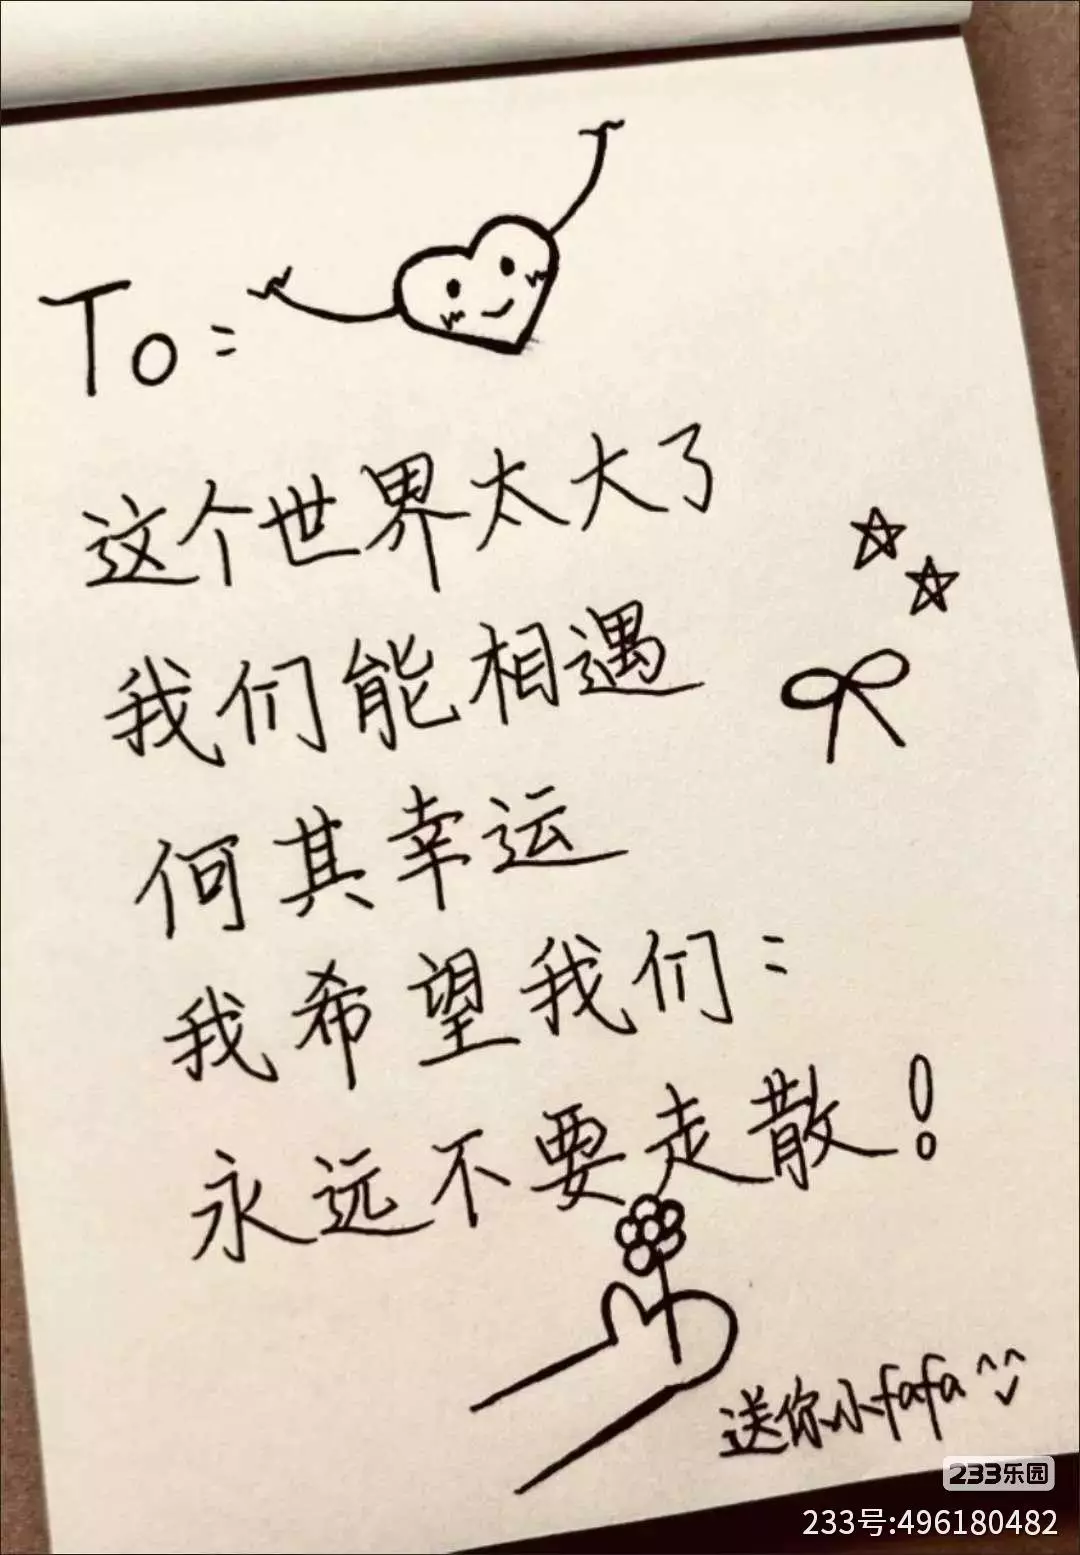 To:
这个世界太大了
我们能相遇
何其幸运
我希望我们:
永远不要走散!
送你小fafa
233乐园
233号:496180482